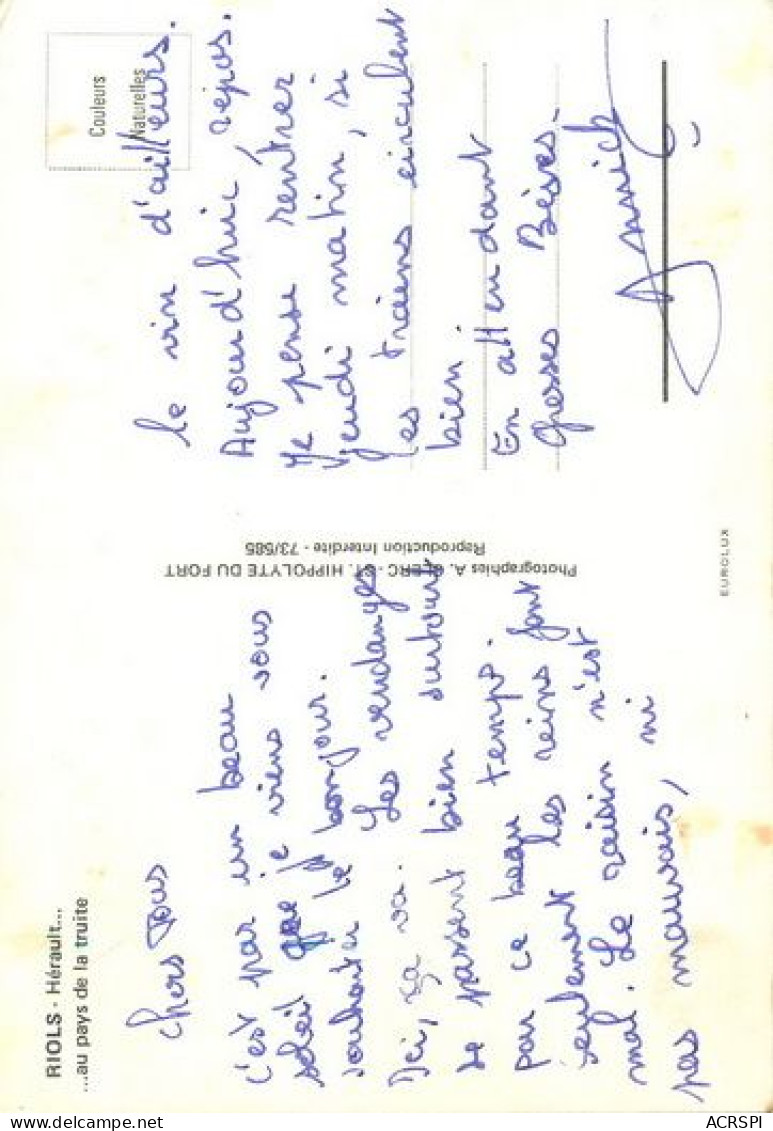 RIOLS - Hérault...
...au pays de la truite
Chers Tous
C'est par un beau
soleil que je viens vous
souhaiter le bonjour.
Ici, ça va. Les vendanges
se passent bien surtout
par ce beau temps.
seulement les reins font
mal. Le raisin n'est
pas mauvais, ni
Photographies A. CLERC - ST. HIPPOLYTE DU FORT
Reproduction Interdite - 73/585
EUROLUX
Couleurs
Naturelles
le vin d'ailleurs.
Aujourd'hui, repos.
Je pense rentrer
jeudi matin, si
les trains circulent
bien.
En attendant
Grosses Bises.
Annick
ACRSPI